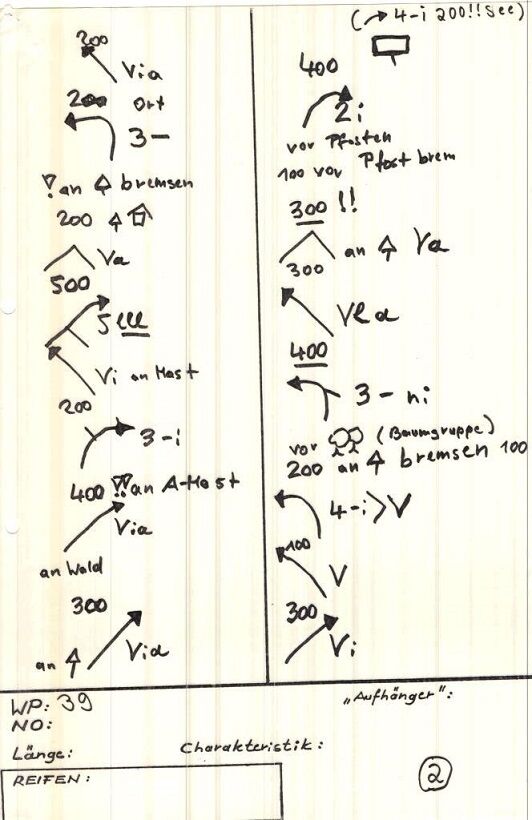 200
Via
200 Ort
3-
an bremsen
200
Va
500
5 lll
Vi an Mast
200
3-i
400 !! an A-Mast
Via
an Wald
300
an Via
(→ 4-i 200!! See)
400
2i
vor Pfosten
100 vor Pfost brem
300 !!
an Va
300
Vla
400
3- ni
vor (Baumgruppe)
200 an bremsen 100
4-i>V
100
V
300
Vi
WP: 39
NO:
Länge: Charakteristik:
REIFEN:
„Aufhänger":
2